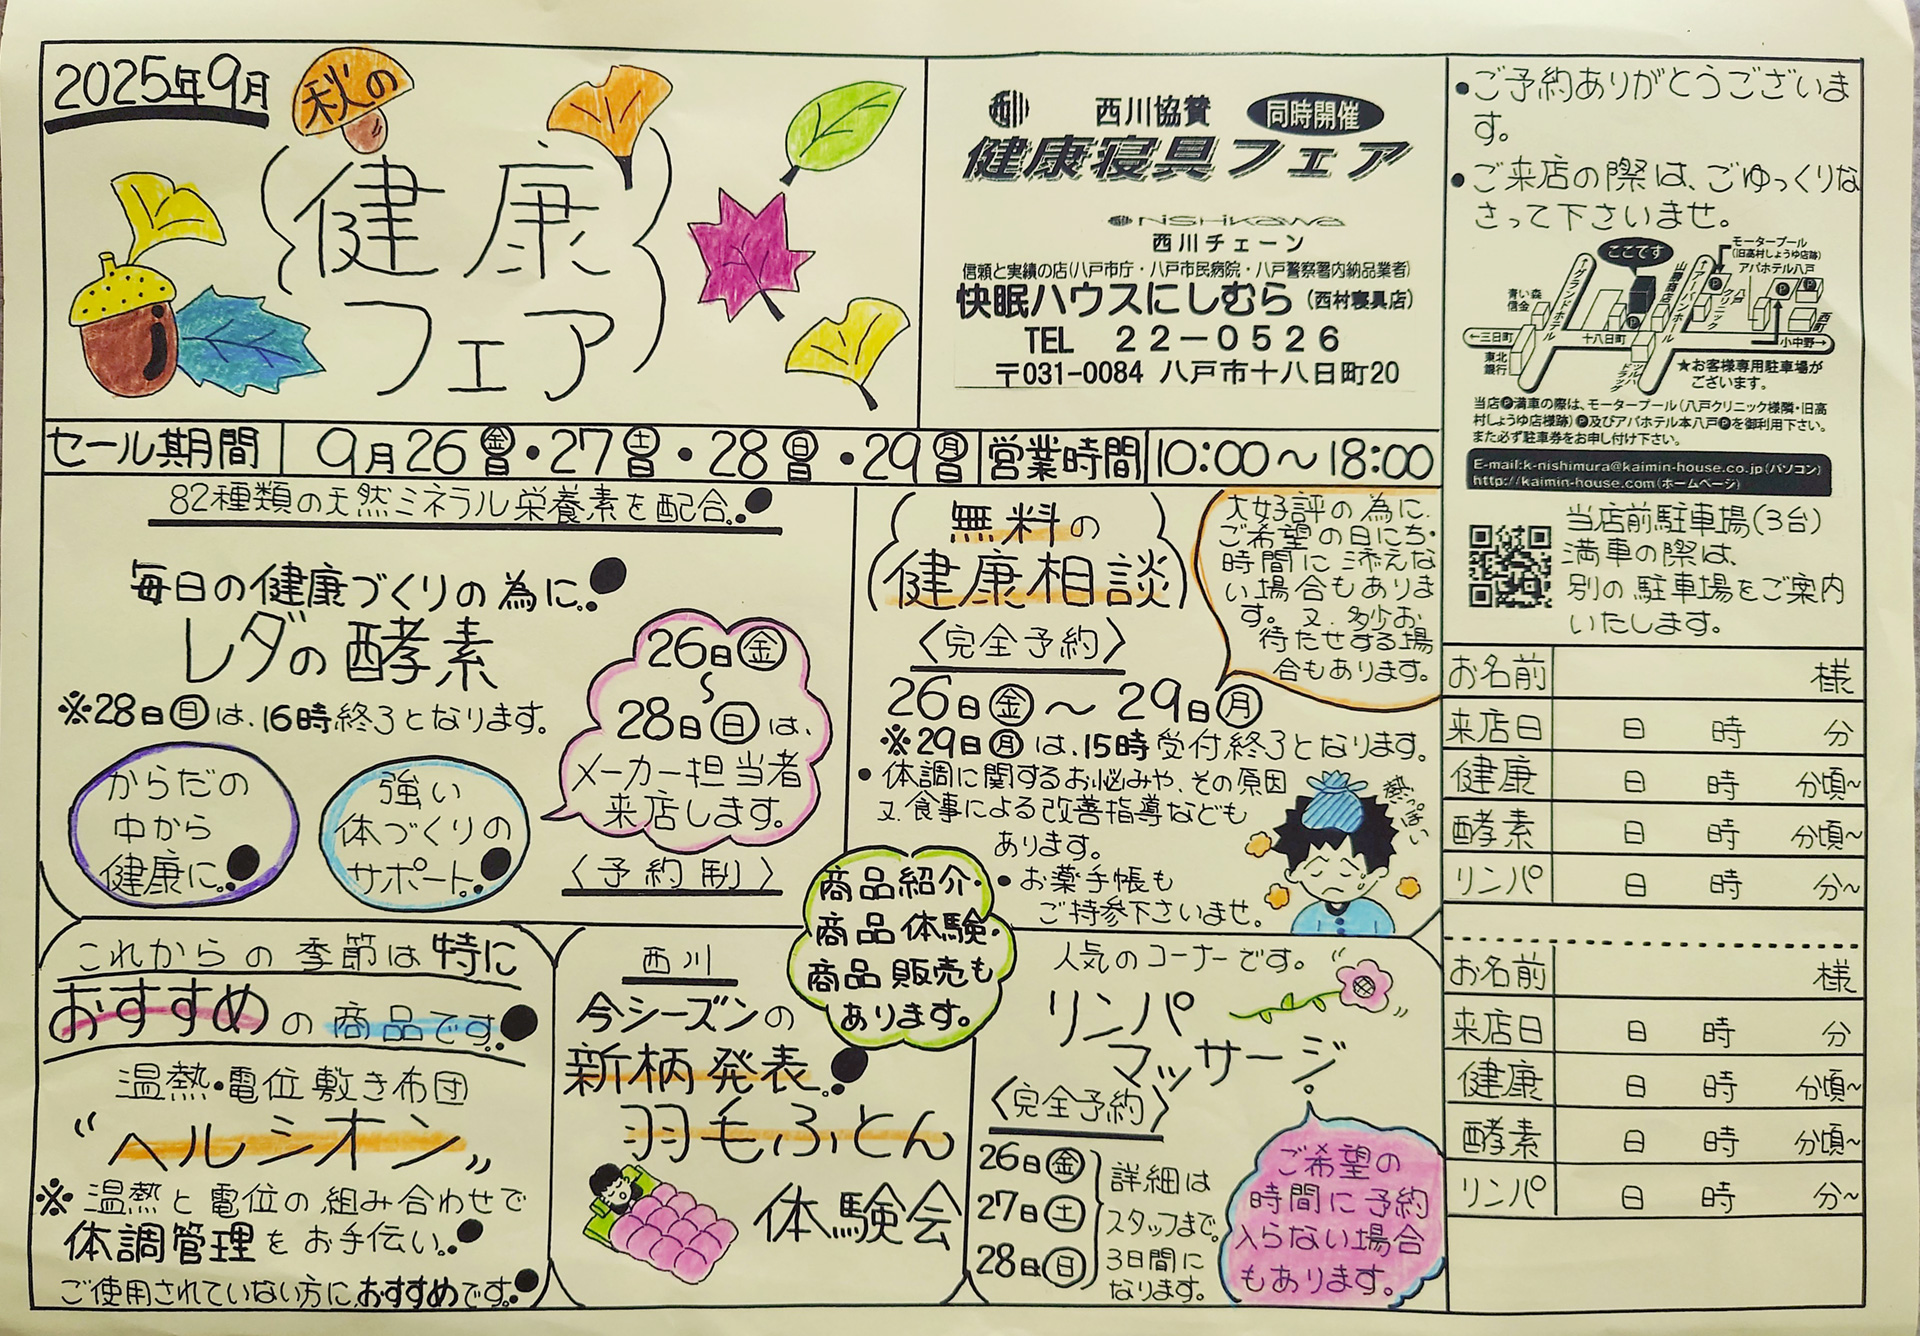 2025年9月
秋の
健康
フェア
西川
西川協賛
同時開催
健康寝具フェア
nishikawa
西川チェーン
信頼と実績の店(八戸市庁・八戸市民病院・八戸警察署内納品業者)
快眠ハウスにしむら(西村寝具店)
TEL 22-0526
〒031-0084 八戸市十八日町20
●ご予約ありがとうございま
す。
●ご来店の際は、ごゆっくりな
さって下さいませ。
ここです
モータープール
(旧高村しょうゆ店跡)
アパホテル八戸
青い森
信金
グランドホテル
アーバンホテル
西町
←三日町
十八日町
小中野→
東北
銀行
ツルハ
ドラッグ
★お客様専用駐車場が
ございます。
当店P満車の際は、モータープール(八戸クリニック様隣・旧高
村しょうゆ店様跡)P及びアパホテル本八戸Pを御利用下さい。
また必ず駐車券をお申し付け下さい。
E-mail:k-nishimura@kaimin-house.co.jp(パソコン)
http://kaimin-house.com(ホームページ)
当店前駐車場(3台)
満車の際は、
別の駐車場をご案内
いたします。
セール期間 9月26金日・27土日・28日日・29月日 営業時間 10:00〜18:00
82種類の天然ミネラル栄養素を配合。
毎日の健康づくりの為に。
レダの酵素
※28日(日)は、16時終了となります。
からだの
中から
健康に。
強い
体づくりの
サポート。
26日(金)
〜
28日(日)は、
メーカー担当者
来店します。
〈予約制〉
無料の
健康相談
〈完全予約〉
26日(金)〜29日(月)
※29日(月)は、15時受付終了となります。
●体調に関するお悩みや、その原因
又、食事による改善指導なども
あります。
●お薬手帳も
ご持参下さいませ。
熱っぽい
大好評の為に、
ご希望の日にち・
時間に添えな
い場合もありま
す。又、多少お
待たせする場
合もあります。
商品紹介・
商品体験・
商品販売も
あります。
これからの季節は特に
おすすめの商品です。
温熱・電位敷き布団
“ヘルシオン”
※温熱と電位の組み合わせで
体調管理をお手伝い。
ご使用されていない方に、おすすめです。
西川
今シーズンの
新柄発表。
羽毛ふとん
体験会
人気のコーナーです。
リンパ
マッサージ
〈完全予約〉
26日(金)
27日(土)
28日(日)
詳細は
スタッフまで。
3日間に
なります。
ご希望の
時間に予約
入らない場合
もあります。
お名前 様
来店日 日 時 分
健康 日 時 分頃〜
酵素 日 時 分頃〜
リンパ 日 時 分〜
お名前 様
来店日 日 時 分
健康 日 時 分頃〜
酵素 日 時 分頃〜
リンパ 日 時 分〜